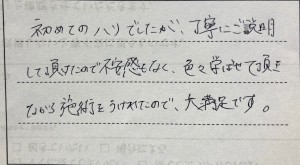 初めてのハリでしたが、丁寧にご説明
して頂けたので不安感もなく、色々学ばせて頂き
ながら施術をうけれたので、大満足です。